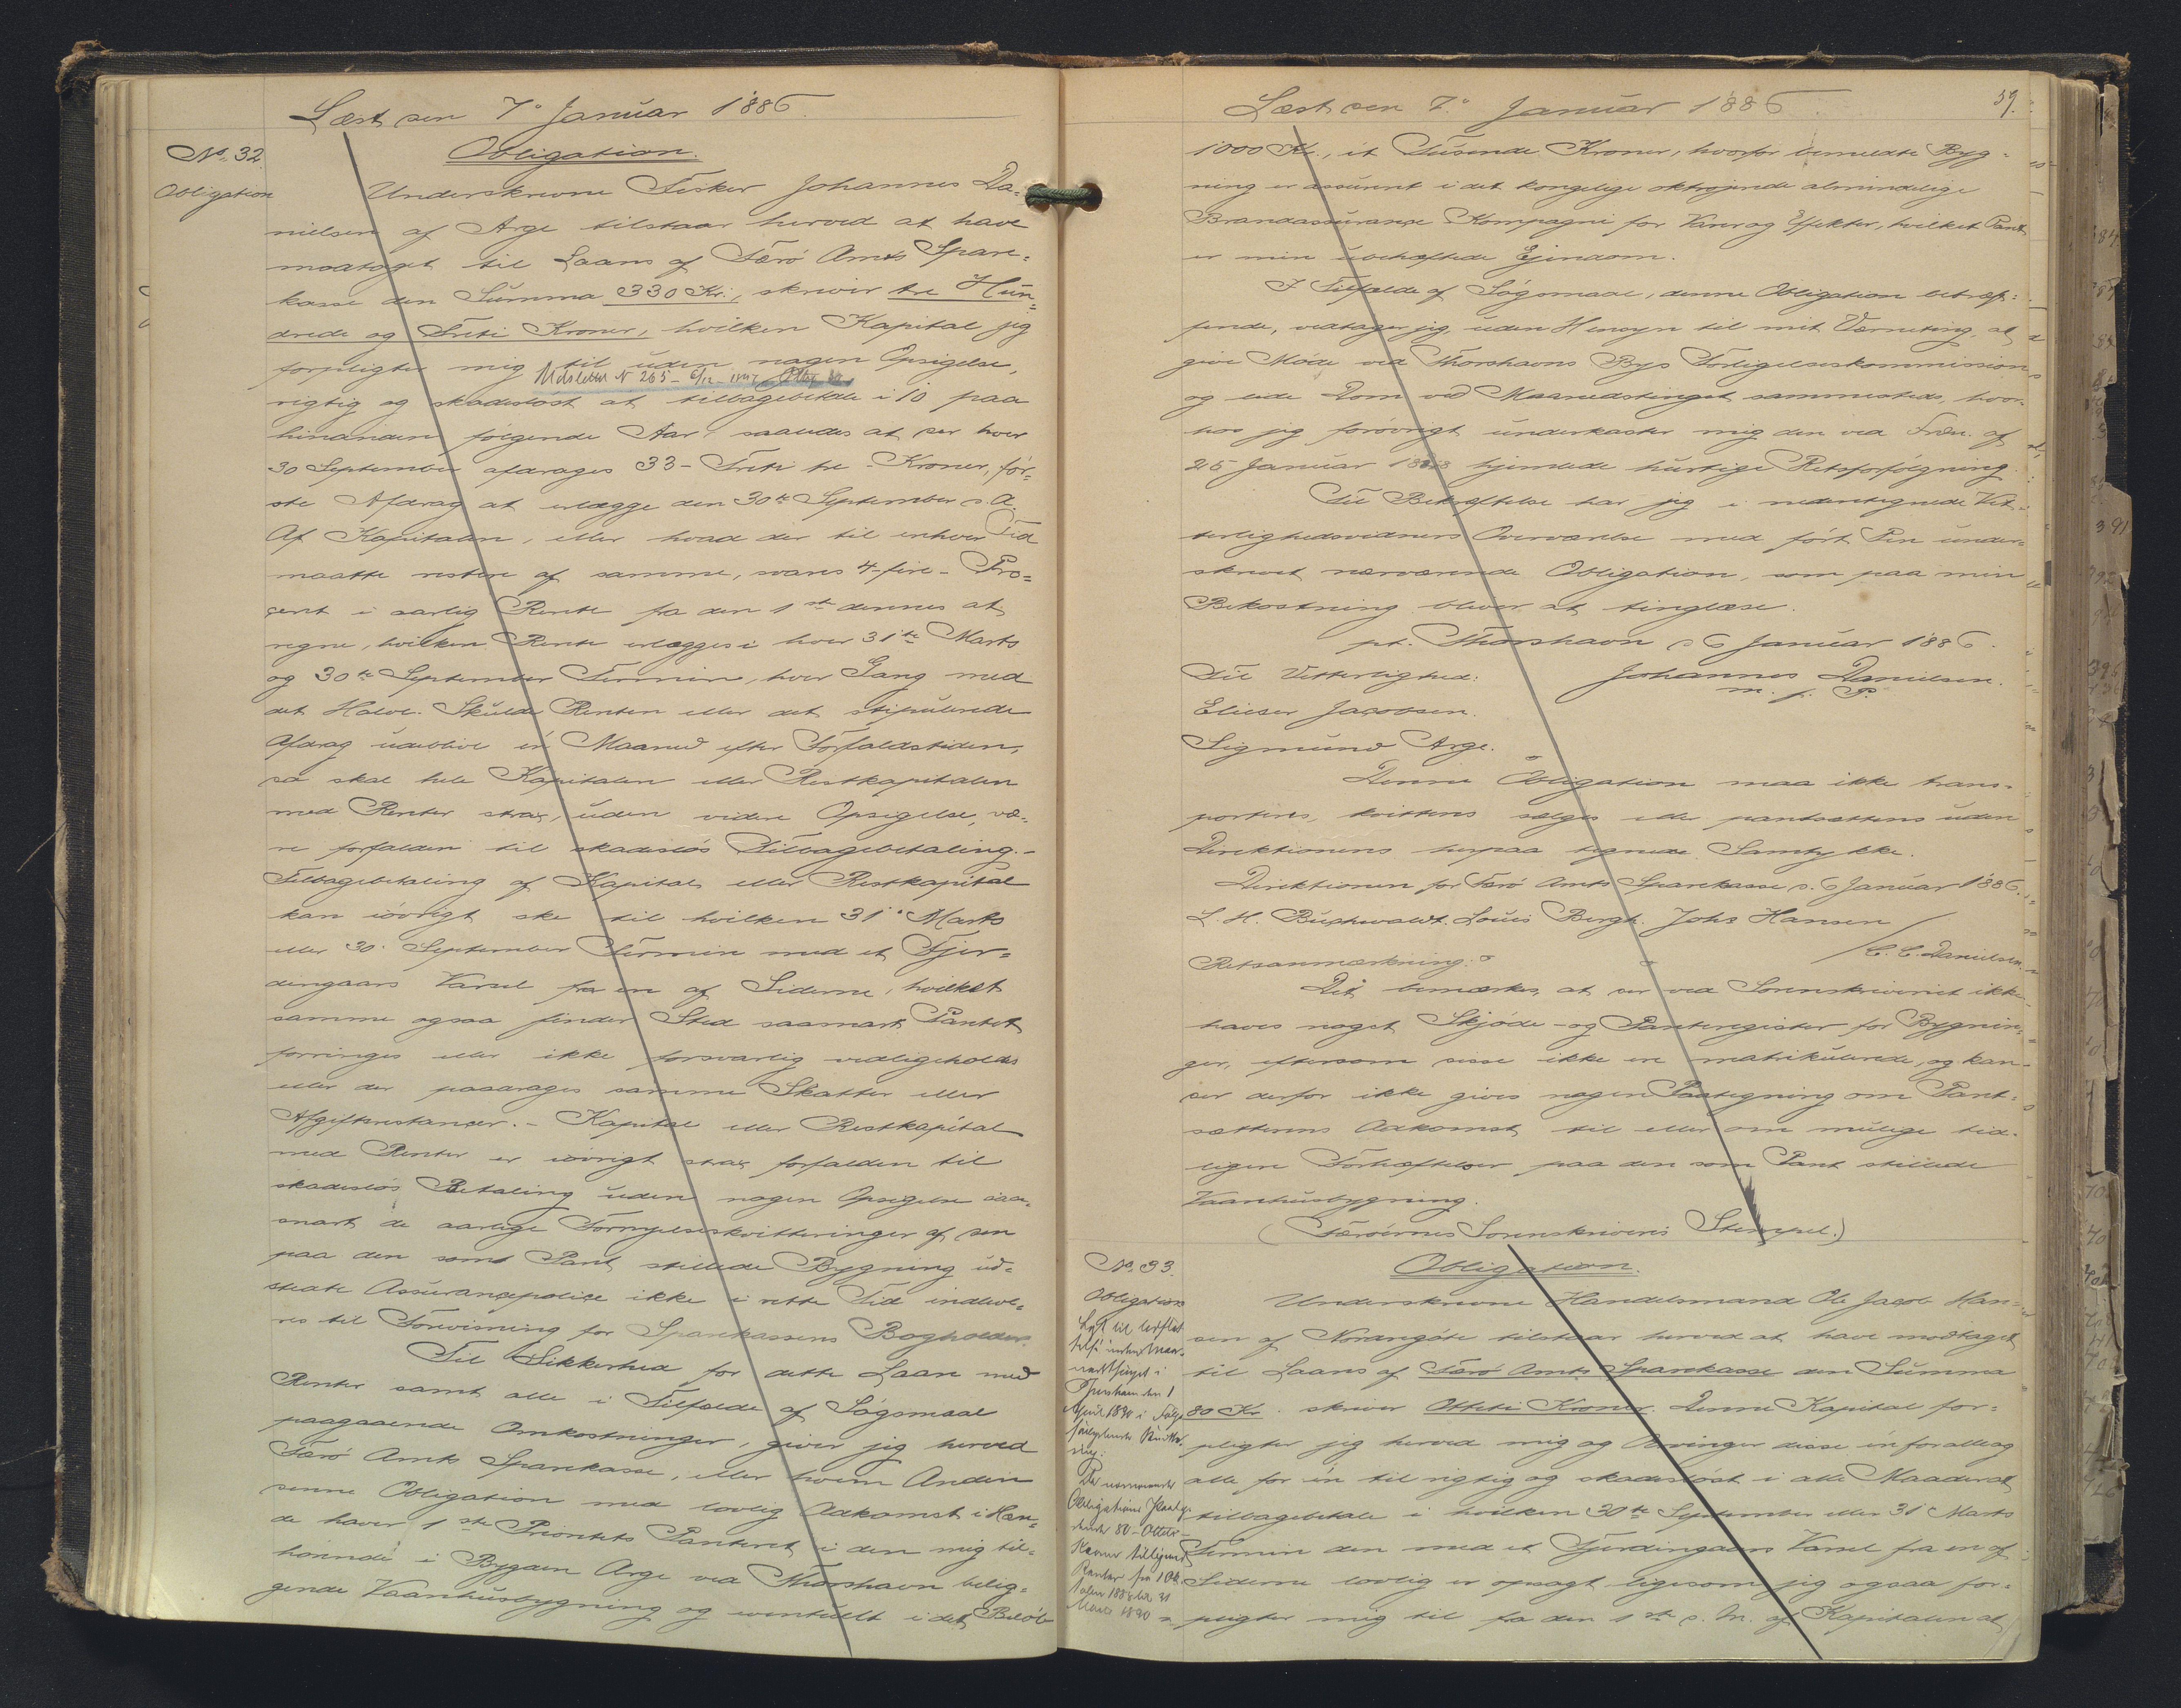 Læst den 7' Januar 1886.
No. 32
Obligation
Obligation.
Underskrevne Fisker Johannes Da-
nielsen af Arge tilstaar herved at have
modtaget til Laans af Færø Amts Spare-
kasse den Summa 330 Kr., skriver tre Hun-
drede og Treti Kroner, hvilken Kapital jeg
forpligter mig til uden nogen Opsigelse,
Udslettet N 265
rigtig og skadesløst at tilbagebetale i 10 paa
hinanden følgende Aar, saaledes at der hver
30 September afdrages 33 - Treti tre - Kroner, før-
ste Afdrag at erlægge den 30te September d. A.
Af Kapitalen, eller hvad der til enhver Tid
maatte restere af samme, svares 4 - fire - Pro-
cent i aarlig Rente fra den 1ste dennes at
regne, hvilken Rente erlægges i hver 31te Marts
og 30te September Termin, hver Gang med
det Halve. Skulde Renten eller det stipulerede
Afdrag udeblive én Maaned efter Forfaldstiden,
da skal hele Kapitalen eller Restkapitalen
med Renter strax, uden videre Opsigelse, væ-
re forfalden til skadesløs Tilbagebetaling.-
Tilbagebetaling af Kapital eller Restkapital
kan iøvrigt ske til hvilken 31' Marts
eller 30' September Termin med et Fjer-
dingaars Varsel fra en af Siderne, hvilket
samme ogsaa finder Sted saasnart Pantet
forringes eller ikke forsvarlig vedligeholdes
eller der paadrages samme Skatter eller
Afgiftsrestancer. - Kapital eller Restkapital
med Renter er iøvrigt strax forfalden til
skadesløs Betaling uden nogen Opsigelse saa-
snart de aarlige Fornyelseskvitteringer af den
paa den som Pant stillede Bygning ud-
stedte Assurancepolice ikke i rette Tid indleve-
res til Forevisning for Sparekassens Bogholder.
Til Sikkerhed for dette Laan med
Renter samt alle i Tilfælde af Søgsmaal
paagaaende Omkostninger, giver jeg herved
Færø Amts Sparekasse, eller hvem Anden
denne Obligation med lovlig Adkomst i Hæn-
de haver, 1ste Prioritets Panteret i den mig til-
hørende i Bygden Arge ved Thorshavn belig-
gende Vaanhusbygning og eventuelt i det Beløb
Læst den 7' Januar 1886.
59.
1000 Kr., et Tusende Kroner, hvorfor bemeldte Byg-
ning er assureret i det kongelige oktrojerede almindelige
Brandassurance Kompagni for Varer og Effekter, hvilket Pant
er min ubehæftede Ejendom.
I Tilfælde af Søgsmaal, denne Obligation betræf-
fende, vedtager jeg, uden Hensyn til mit Værneting, at
give Møde ved Thorshavns Bys Forligelseskommission
og lide Dom ved Maanedstinget sammesteds, hvor-
hos jeg forøvrigt underkaster mig den ved Frdn. af
25 Januar 1828 hjemlede hurtige Retsforfølgning.
Til Bekræftelse har jeg i nedentegnede Vit-
terlighedsvidners Overværelse med ført Pen under-
skrevet nærværende Obligation, som paa min
Bekostning bliver at tinglæse.
pt. Thorshavn d 6 Januar 1886.
Til Vitterlighed:
Johannes Danielsen.
m. f. P.
Elieser Jacobsen.
Sigmund Arge.
Denne Obligation maa ikke trans-
porteres, kvitteres sælges eller pantsættes uden
Direktionens herpaa tegnede Samtykke.
Direktionen for Færø Amts Sparekasse d. 6 Januar 1886.
L. H. Buchwaldt. Louis Bergh. Johs Hansen
/ C. C. Danielsen.
Retsanmærkning:
Det bemærkes, at der ved Sorenskriveriet ikke
haves noget Skjøde- og Panteregister for Bygnin-
ger, eftersom disse ikke ere matrikulerede, og kan
der derfor ikke gives nogen Paategning om Pant-
sætterens Adkomst til eller om mulige tid-
ligere Forhæftelser paa den som Pant stillede
Vaanhusbygning.
(Færøernes Sorenskriveris Stempel.)
No. 33.
Obligation
Obligation.
Underskrevne Handelsmand Ole Jacob Han-
sen af Norangøte tilstaar herved at have modtaget
til Laans af Færø Amts Sparekasse den Summa
80 Kr. skriver Otteti Kroner. Denne Kapital for-
pligter jeg herved mig og Arvinger disse én for alle og
alle for én til rigtig og skadesløst i alle Maader at
tilbagebetale i hvilken 30te September eller 31' Marts
Termin den med et Fjerdingaars Varsel fra en af
Siderne lovlig er opsagt ligesom jeg ogsaa for-
pligter mig til fra den 1ste d. M. af Kapitalen at
Lyst til
Thorshavn den 1
April 1890 i Følge
Obligations
80 - Otteti -
Kroner tilligemed
Renter fra 1 Ok-
tober 1888 til 31
Marts 1890